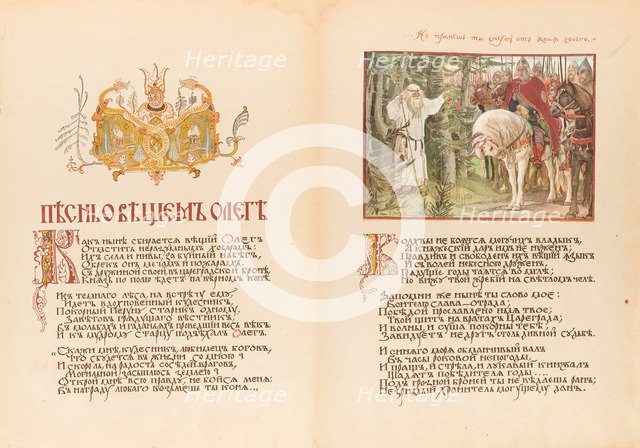 ПѢСНЬ О ВѢЩЕМЪ ОЛЕГѢ
Какъ нынѣ сбирается вѣщій Олегъ
Отмстить неразумнымъ хозарамъ:
Ихъ села и нивы, за буйный набѣгъ,
Обрекъ онъ мечамъ и пожарамъ.
Съ дружиной своей, въ цареградской бронѣ,
Князь по полю ѣдетъ на вѣрномъ конѣ.
Изъ темнаго лѣса, на встрѣчу ему,
Идетъ вдохновенный кудесникъ,
Покорный Перуну старикъ одному,
Завѣтовъ грядущаго вѣстникъ,
Въ мольбахъ и гаданьяхъ проведшій весь вѣкъ.
И къ мудрому старцу подъѣхалъ Олегъ.
„Скажи мнѣ, кудесникъ, любимецъ боговъ,
Что сбудется въ жизни со мною?
И скоро-ль, на радость сосѣдей-враговъ,
Могильной засыплюсь землею?
Открой мнѣ всю правду, не бойся меня:
Въ награду любаго возьмешь ты коня.„
...Но примешь ты смерть отъ коня своего...
Волхвы не боятся могучихъ владыкъ,
А княжескій даръ имъ не нуженъ;
Правдивъ и свободенъ ихъ вѣщій языкъ
И съ волей небесною друженъ.
Грядущіе годы таятся во мглѣ;
Но вижу твой жребій на свѣтломъ челѣ.
Запомни же нынѣ ты слово мое:
Воителю слава — отрада;
Побѣдой прославлено имя твое;
Твой щитъ на вратахъ Цареграда;
И волны и суша покорны тебѣ;
Завидуетъ недругъ столь дивной судьбѣ.
И синяго моря обманчивый валъ
Въ часы роковой непогоды,
И пращъ, и стрѣла, и лукавый кинжалъ
Щадятъ побѣдителя годы....
Подъ грозной броней ты не вѣдаешь ранъ;
Незримый хранитель могущему данъ.
Heritage
Heritage
Heritage
Heritage
Heritage
Heritage